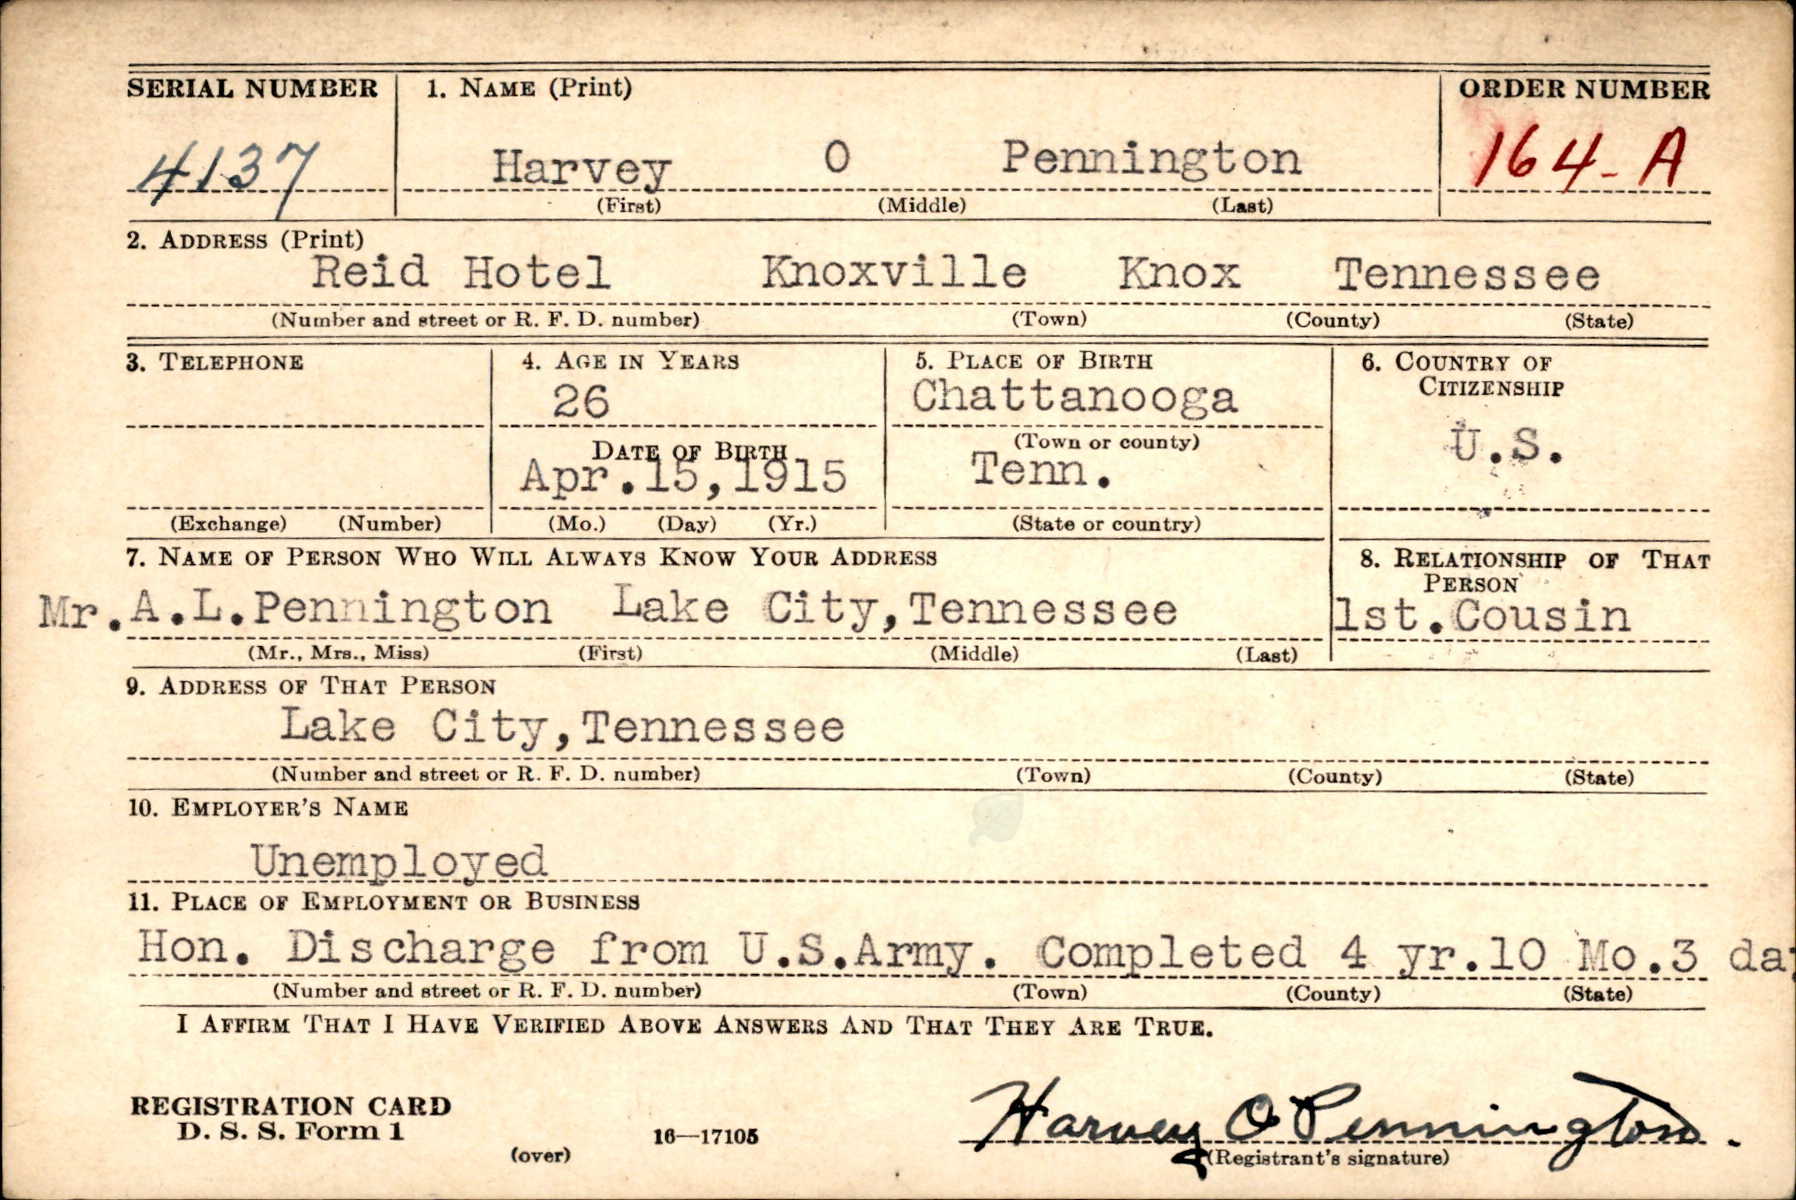 SERIAL NUMBER 1. NAME (Print) ORDER NUMBER
4137 Harvey O Pennington 164-A
(First) (Middle) (Last)
2. ADDRESS (Print)
Reid Hotel Knoxville Knox Tennessee
(Number and street or R. F. D. number) (Town) (County) (State)
3. TELEPHONE 4. AGE IN YEARS 5. PLACE OF BIRTH 6. COUNTRY OF
CITIZENSHIP
26 Chattanooga
(Town or county)
U.S.
DATE OF BIRTH
Apr.15,1915 Tenn.
(Exchange) (Number) (Mo.) (Day) (Yr.) (State or country)
7. NAME OF PERSON WHO WILL ALWAYS KNOW YOUR ADDRESS 8. RELATIONSHIP OF THAT
PERSON
Mr.A.L.Pennington Lake City,Tennessee 1st.Cousin
(Mr., Mrs., Miss) (First) (Middle) (Last)
9. ADDRESS OF THAT PERSON
Lake City,Tennessee
(Number and street or R. F. D. number) (Town) (County) (State)
10. EMPLOYER'S NAME
Unemployed
11. PLACE OF EMPLOYMENT OR BUSINESS
Hon. Discharge from U.S.Army. Completed 4 yr.10 Mo.3 day
(Number and street or R. F. D. number) (Town) (County) (State)
I AFFIRM THAT I HAVE VERIFIED ABOVE ANSWERS AND THAT THEY ARE TRUE.
REGISTRATION CARD
D. S. S. Form 1 16—17105 Harvey O Pennington.
(over) (Registrant's signature)